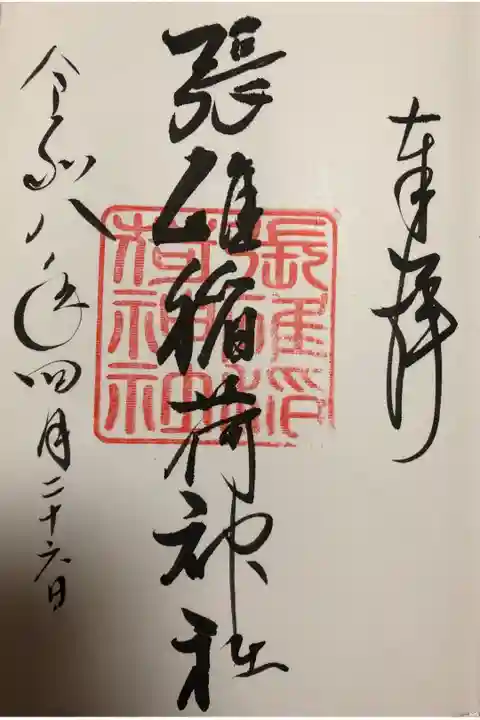 奉拝
張雄稲荷神社
令和八年四月二十六日
張雄稲
荷神社